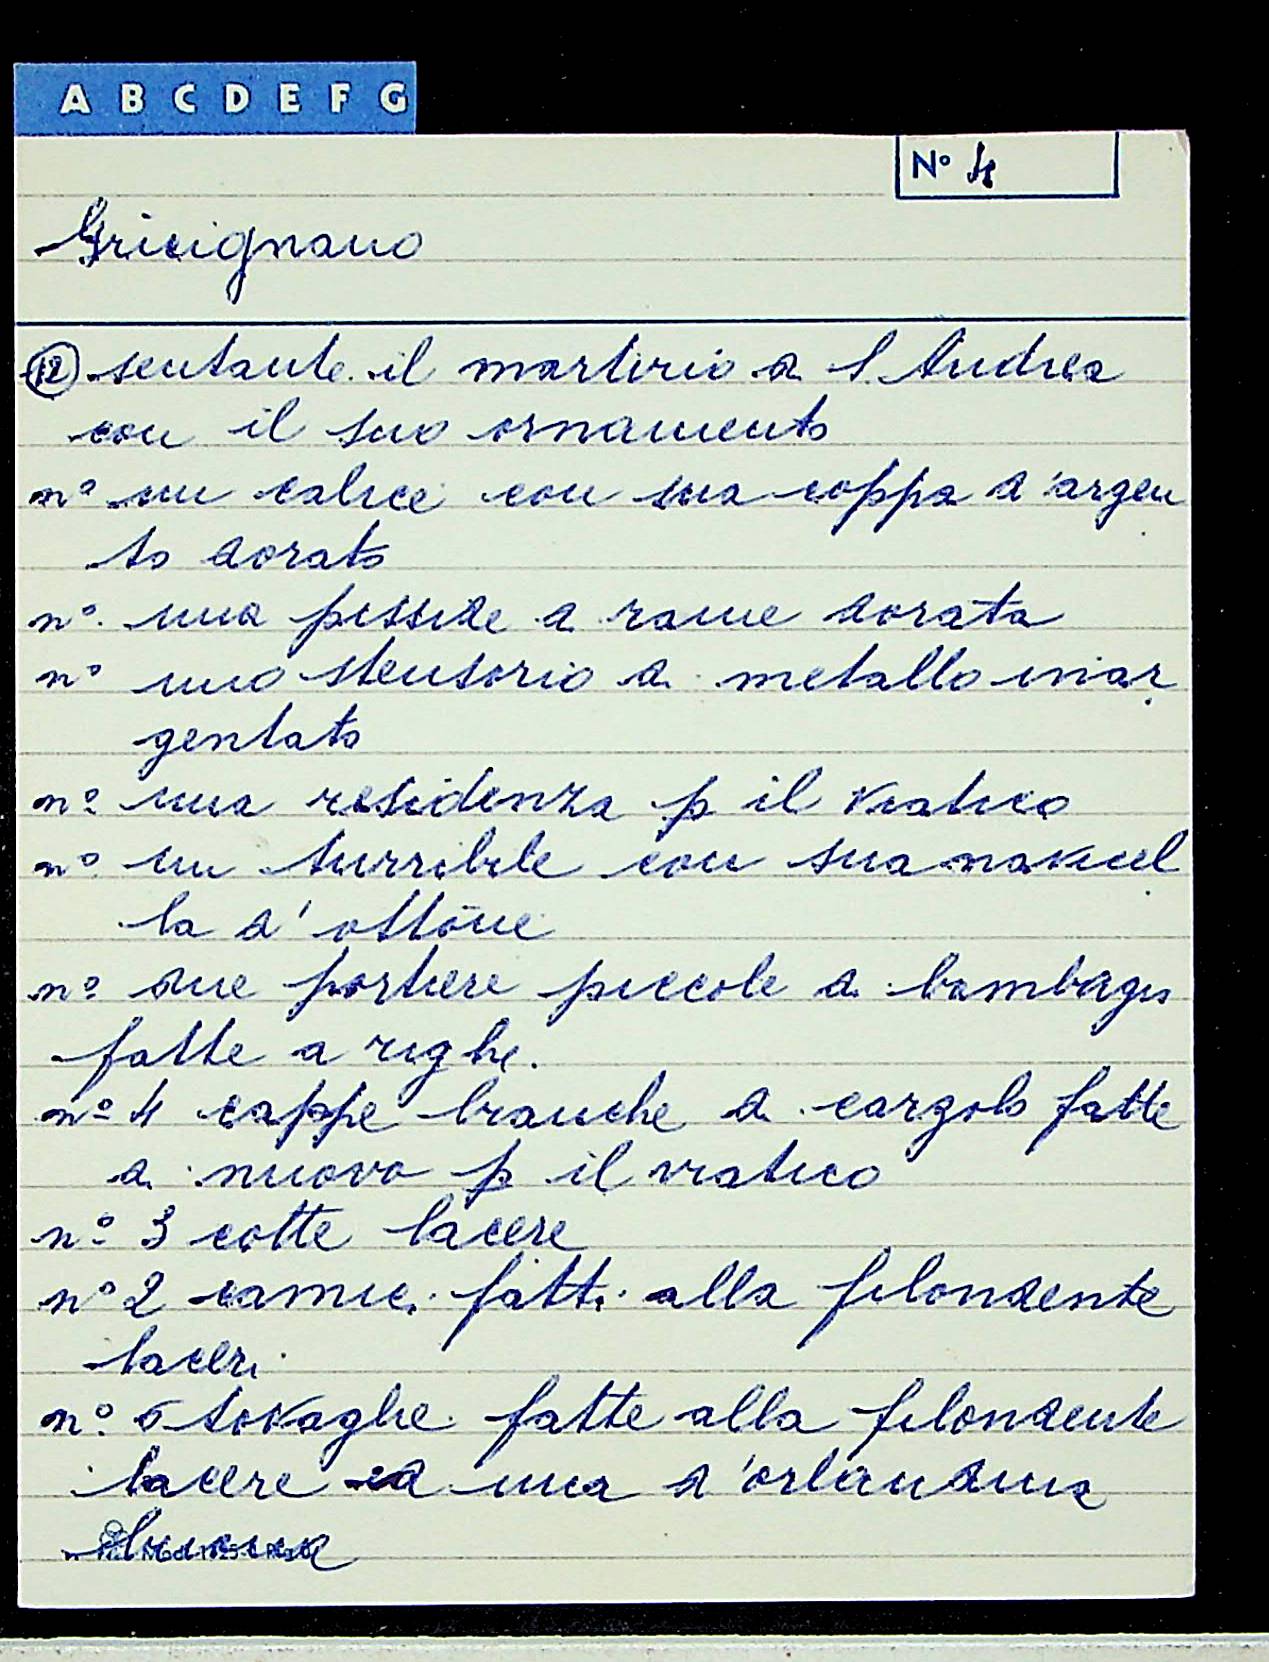 A B C D E F G
N° 4
Gricignano
12 sentante il martirio d. S. Andrea
con il suo ornamento
n° un calice con sua coppa d'argen
to dorato
n° una pisside d. rame dorata
n° uno stensorio d. metallo inar
gentato
n° una residenza p il viatico
n° un turribile con sua navicel
la d'ottone
n° due portiere piccole d. bambagis
fatte a righe.
n° 4 cappe bianche d. carzolo fatte
d. nuovo p il viatico
n° 3 cotte lacere
n° 2 camici fatti alla filondente
laceri
n° 6 tovaglie fatte alla filondente
lacere ed una d'orlandina
buona